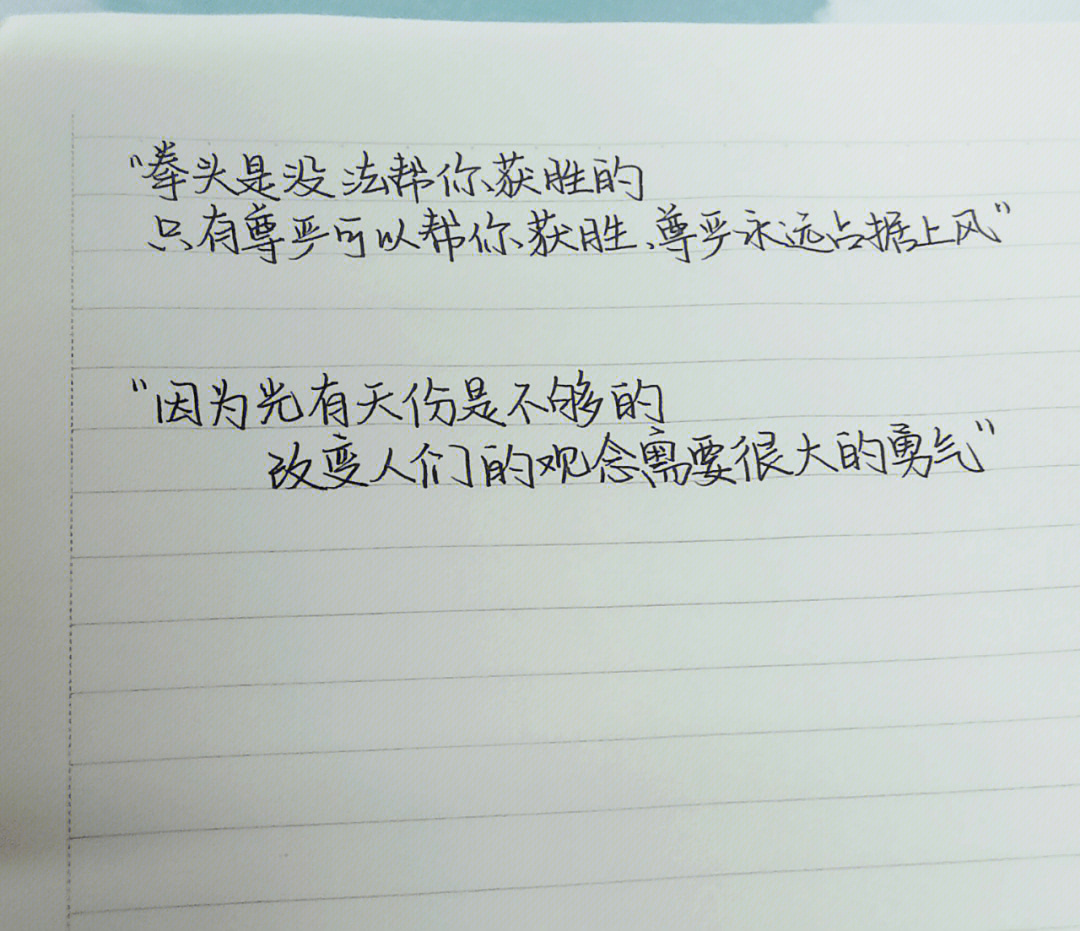 “拳头是没法帮你获胜的
只有尊严可以帮你获胜、尊严永远占据上风”
“因为光有天份是不够的
改变人们的观念需要很大的勇气”